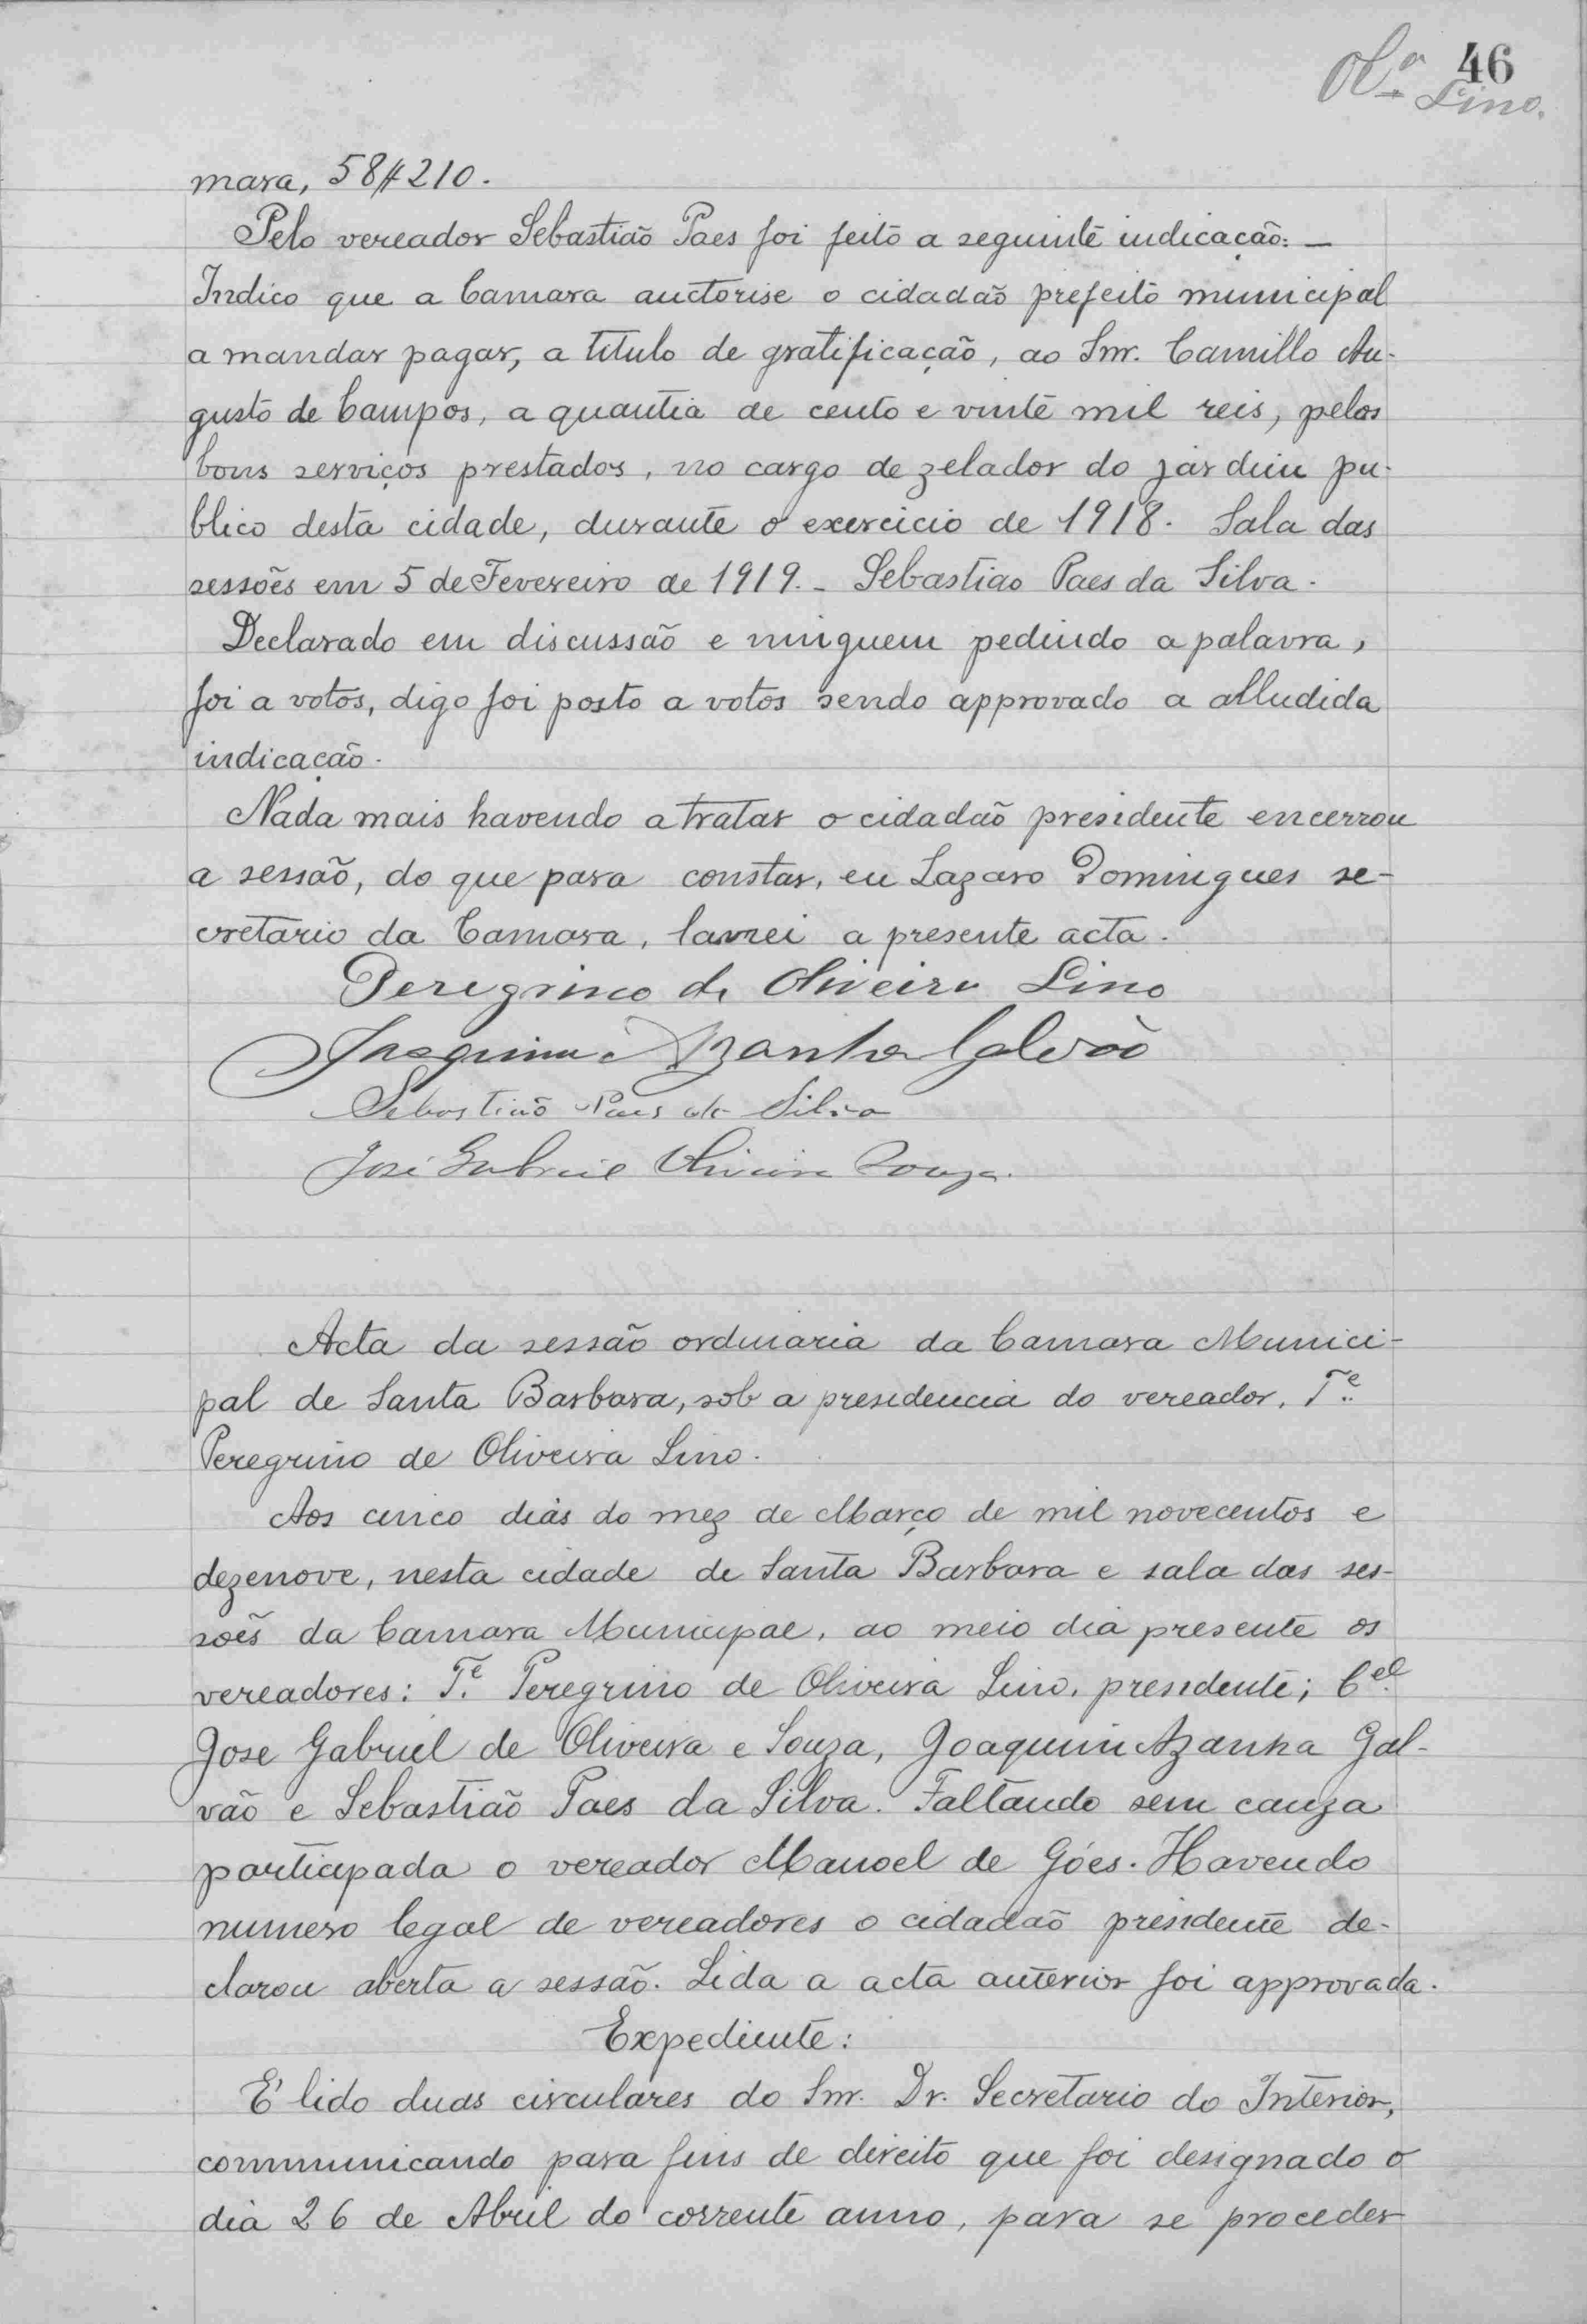 46
Olª Lino.
mara, 58$210.
Pelo vereador Sebastião Paes foi feito a seguinte indicação: —
Indico que a Camara auctorise o cidadão prefeito municipal
a mandar pagar, a titulo de gratificação, ao Snr. Camillo Au-
gusto de Campos, a quantia de cento e vinte mil reis, pelos
bons serviços prestados, no cargo de zelador do jardim pu-
blico desta cidade, durante o exercicio de 1918. Sala das
sessões em 5 de Fevereiro de 1919. - Sebastiao Paes da Silva.
Declarado em discussão e ninguem pedindo a palavra,
foi a votos, digo foi posto a votos sendo approvado a alludida
indicação.
Nada mais havendo a tratar o cidadão presidente encerrou
a sessão, do que para constar, eu Lazaro Domingues se-
cretario da Camara, lavrei a presente acta.
Peregrino de Oliveira Lino
Joaquim Azanha Galvão
Sebastião Paes da Silva
José Gabriel Oliveira Souza.
Acta da sessão ordinaria da Camara Munici-
pal de Santa Barbara, sob a presidencia do vereador, Tᵉ.
Peregrino de Oliveira Lino.
Aos cinco dias do mez de Março de mil novecentos e
dezenove, nesta cidade de Santa Barbara e sala das ses-
sões da Camara Municipal, ao meio dia presente os
vereadores: Tᵉ. Peregrino de Oliveira Lino, presidente; Cᵉˡ.
Jose Gabriel de Oliveira e Souza, Joaquim Azanha Gal-
vão e Sebastião Paes da Silva. Faltando sem cauza
participada o vereador Manoel de Góes. Havendo
numero legal de vereadores o cidadão presidente de-
clarou aberta a sessão. Lida a acta anterior foi approvada.
Expediente:
E' lido duas circulares do Snr. Dr. Secretario do Interior,
communicando para fins de direito que foi designado o
dia 26 de Abril do corrente anno, para se proceder